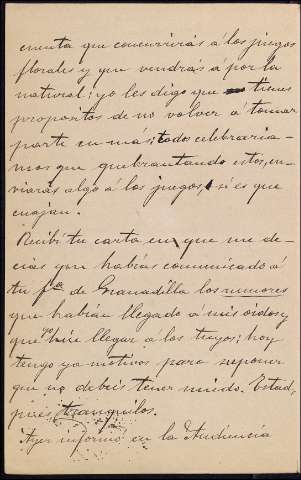 cuenta que concurrirás á los juegos
florales y que vendrás á por la
natural: yo les digo que tienes
propositos de no volver á tomar
parte en más: todos celebraria-
mos que quebrantando estos, en-
viarás algo á los juegos, si es que
cuajan.
Recibí tu carta en que me de-
cias que habías comunicado á
tu fª de Granadilla los rumores
que habian llegado á mis oidos y
que yo hice llegar á los tuyos; hoy
tengo ya motivos para suponer
que no debeis tener miedo. Estad,
pues tranquilos.
Ayer informó en la Audiencia